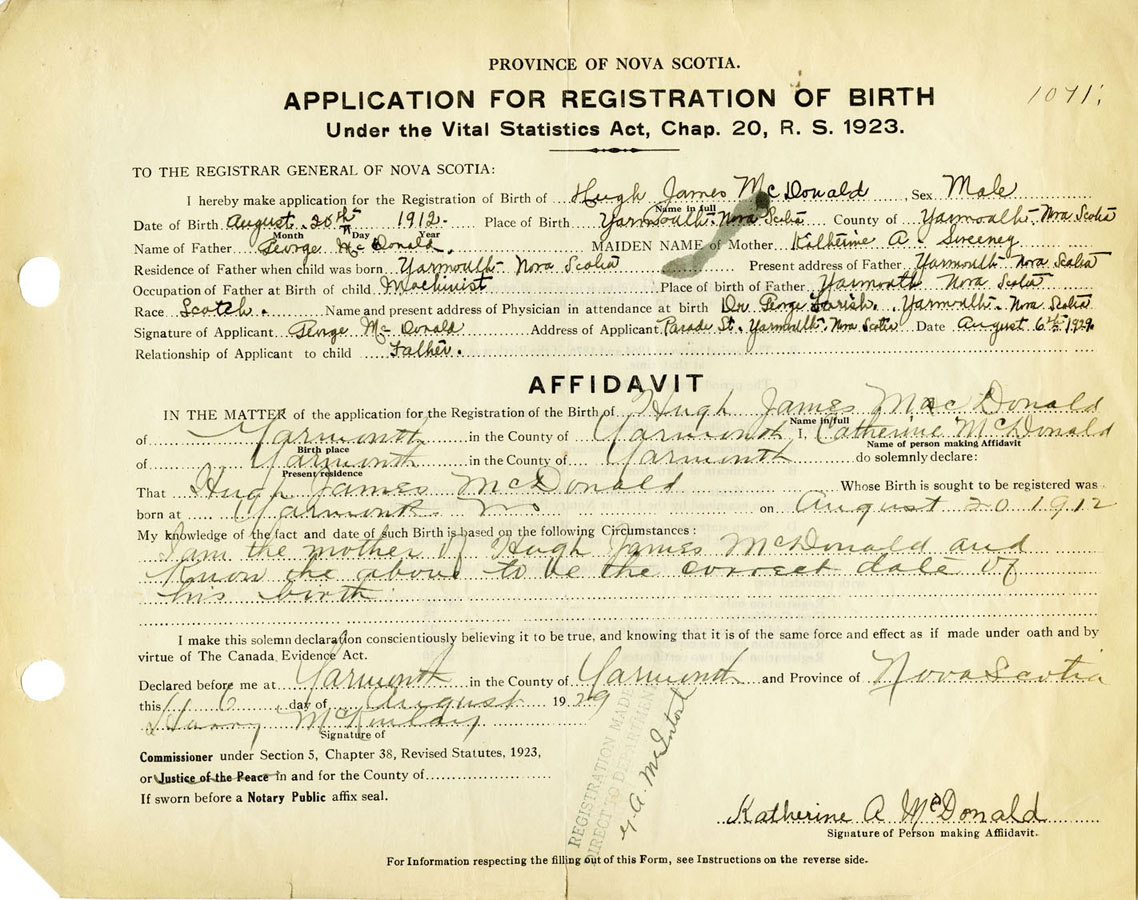 PROVINCE OF NOVA SCOTIA.
APPLICATION FOR REGISTRATION OF BIRTH
1071
Under the Vital Statistics Act, Chap. 20, R. S. 1923.
TO THE REGISTRAR GENERAL OF NOVA SCOTIA:
I hereby make application for the Registration of Birth of Hugh James McDonald, Sex Male
Name in full
Date of Birth August 20th 1912. Place of Birth Yarmouth Nova Scotia County of Yarmouth Nova Scotia
Month Day Year
Name of Father George McDonald. MAIDEN NAME of Mother Katherine A. Sweeney
Residence of Father when child was born Yarmouth Nova Scotia Present address of Father Yarmouth Nova Scotia
Occupation of Father at Birth of child Machinist Place of birth of Father Yarmouth Nova Scotia
Race Scotch. Name and present address of Physician in attendance at birth Dr. George Yarmouth Nova Scotia
Signature of Applicant George McDonald Address of Applicant Parade St. Yarmouth Nova Scotia Date August 6th 1929
Relationship of Applicant to child Father.
AFFIDAVIT
IN THE MATTER of the application for the Registration of the Birth of Hugh James MacDonald
Name in full
of Yarmouth in the County of Yarmouth I, Catherine McDonald
Birth place Name of person making Affidavit
of Yarmouth in the County of Yarmouth do solemnly declare:
Present residence
That Hugh James McDonald Whose Birth is sought to be registered was
born at Yarmouth NS on August 20 1912
My knowledge of the fact and date of such Birth is based on the following Circumstances:
I am the mother of Hugh James McDonald and
know the above to be the correct date of
his birth
I make this solemn declaration conscientiously believing it to be true, and knowing that it is of the same force and effect as if made under oath and by
virtue of The Canada Evidence Act.
Declared before me at Yarmouth in the County of Yarmouth and Province of Nova Scotia
this 6 day of August 1929
Harry McKinlay
Signature of
Commissioner under Section 5, Chapter 38, Revised Statutes, 1923,
or Justice of the Peace in and for the County of
If sworn before a Notary Public affix seal.
REGISTRATION MADE
McIntosh
Katherine A McDonald
Signature of Person making Affidavit.
For Information respecting the filling out of this Form, see Instructions on the reverse side.